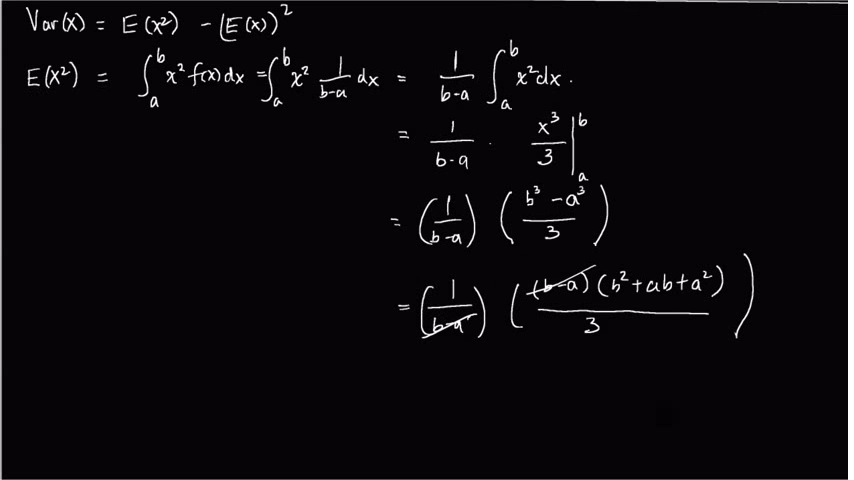 Var(x) = E(x²) - (E(x))²
E(x²) = ∫_a^b x² f(x) dx = ∫_a^b x² 1/(b-a) dx = 1/(b-a) ∫_a^b x² dx.
= 1/(b-a) · x³/3 |_a^b
= (1/(b-a)) ((b³ - a³)/3)
= (1/(b-a)) ((b-a)(b² + ab + a²)/3)